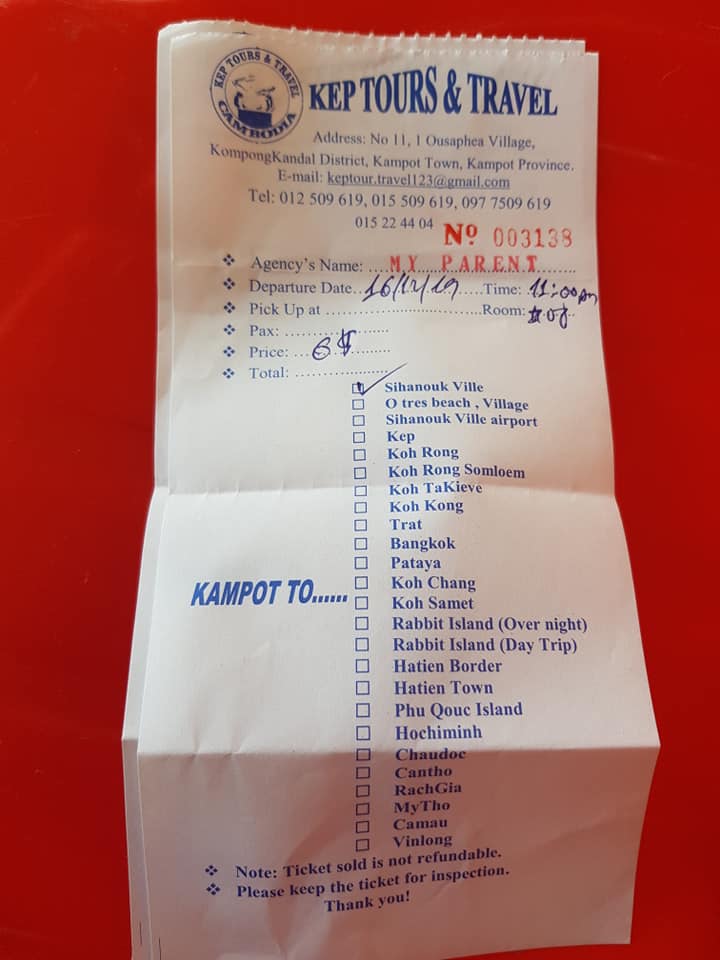 KEP TOURS & TRAVEL
CAMBODIA
KEP TOURS & TRAVEL
Address: No 11, 1 Ousaphea Village,
KompongKandal District, Kampot Town, Kampot Province.
E-mail: keptour.travel123@gmail.com
Tel: 012 509 619, 015 509 619, 097 7509 619
015 22 44 04
Nº 003138
❖ Agency's Name: ....MY PARENT........
❖ Departure Date..16/12/19....Time: 11:00am
❖ Pick Up at ..................................Room:
❖ Pax: ........................
❖ Price: ...6$..........
❖ Total: .....................
☑ Sihanouk Ville
☐ O tres beach , Village
☐ Sihanouk Ville airport
☐ Kep
☐ Koh Rong
☐ Koh Rong Somloem
☐ Koh TaKieve
☐ Koh Kong
☐ Trat
☐ Bangkok
☐ Pataya
KAMPOT TO......
☐ Koh Chang
☐ Koh Samet
☐ Rabbit Island (Over night)
☐ Rabbit Island (Day Trip)
☐ Hatien Border
☐ Hatien Town
☐ Phu Qouc Island
☐ Hochiminh
☐ Chaudoc
☐ Cantho
☐ RachGia
☐ MyTho
☐ Camau
☐ Vinlong
❖ Note: Ticket sold is not refundable.
❖ Please keep the ticket for inspection.
Thank you!